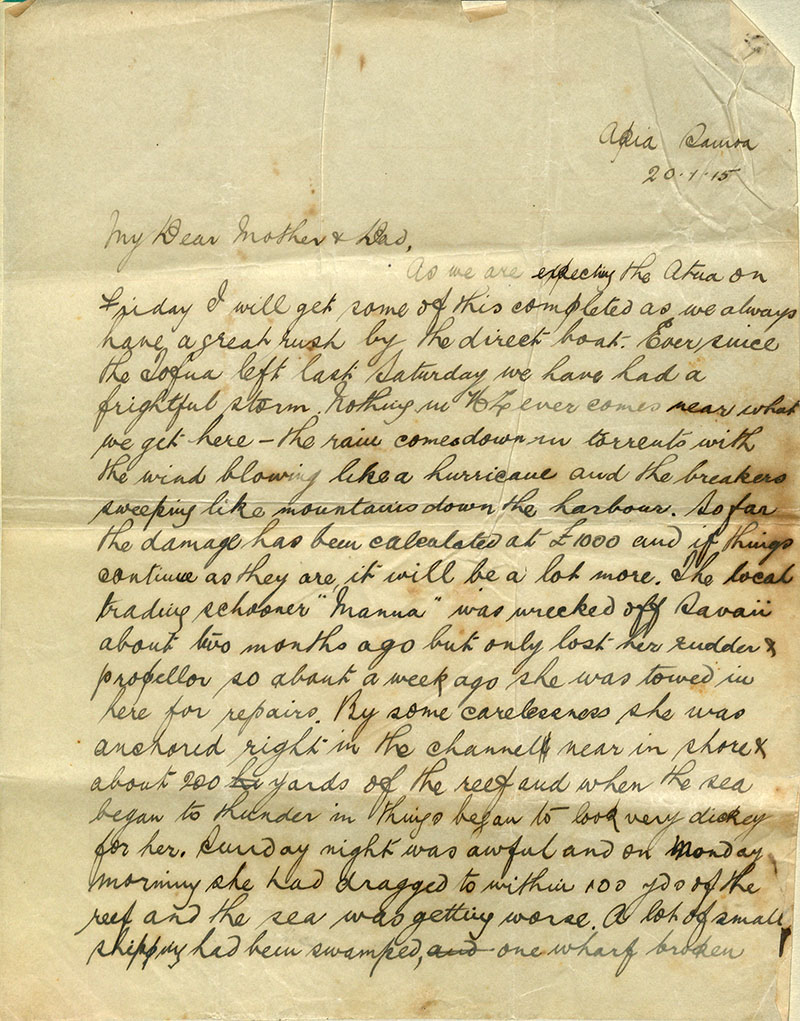 Apia Samoa
20.1.15
My Dear Mother & Dad,
As we are expecting the Atua on
Friday I will get some of this completed as we always
have a great rush by the direct boat. Ever since
the Tofua left last Saturday we have had a
frightful storm. Nothing in NZ ever comes near what
we get here – the rain comes down in torrents with
the wind blowing like a hurricane and the breakers
sweeping like mountains down the harbour. So far
the damage has been calculated at £1000 and if things
continue as they are, it will be a lot more. The local
trading schooner "Manua" was wrecked off Savaii
about two months ago but only lost her rudder &
propellor so about a week ago she was towed in
here for repairs. By some carelessness she was
anchored right in the channel near in shore &
about 200 yards of the reef and when the sea
began to thunder in things began to look very dickey
for her. Sunday night was awful and on Monday
morning she had dragged to within 100 yds of the
reef and the sea was getting worse. A lot of small
shipping had been swamped, and one wharf broken